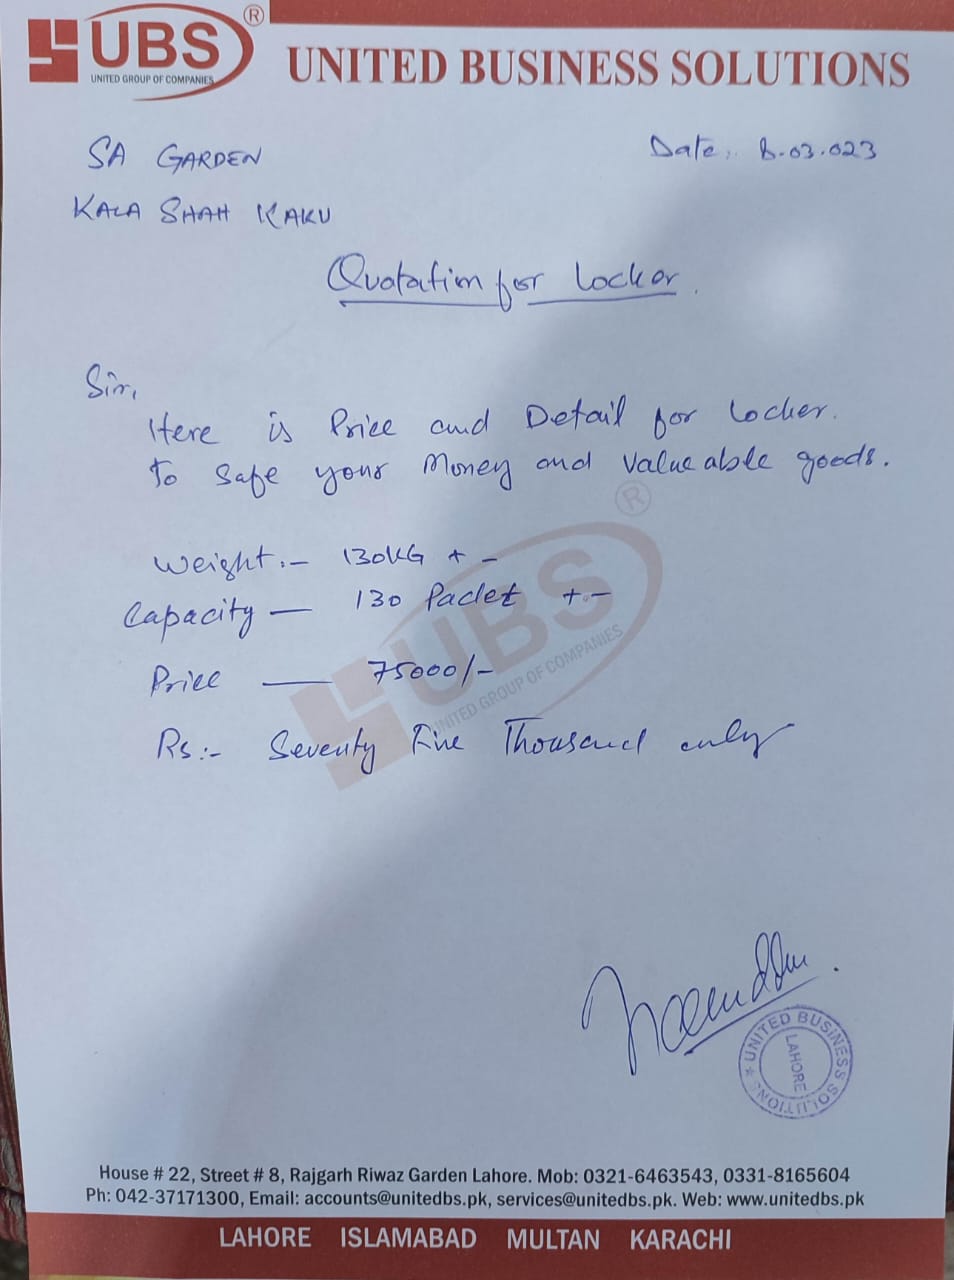 UBS®
UNITED GROUP OF COMPANIES
UNITED BUSINESS SOLUTIONS
SA GARDEN
Date:. 8.03.023
KALA SHAH KAKU
Quotation for Locker.
Sir,
Here is Price and Detail for Locker.
To Safe your Money and Valueable goods.
®
UBS
UNITED GROUP OF COMPANIES
Weight:- 130KG + -
Capacity — 130 Packet +.-
Price — 75000/-
Rs:- Seventy Five Thousand only
UNITED BUSINESS SOLUTIONS *
LAHORE
House # 22, Street # 8, Rajgarh Riwaz Garden Lahore. Mob: 0321-6463543, 0331-8165604
Ph: 042-37171300, Email: accounts@unitedbs.pk, services@unitedbs.pk. Web: www.unitedbs.pk
LAHORE ISLAMABAD MULTAN KARACHI